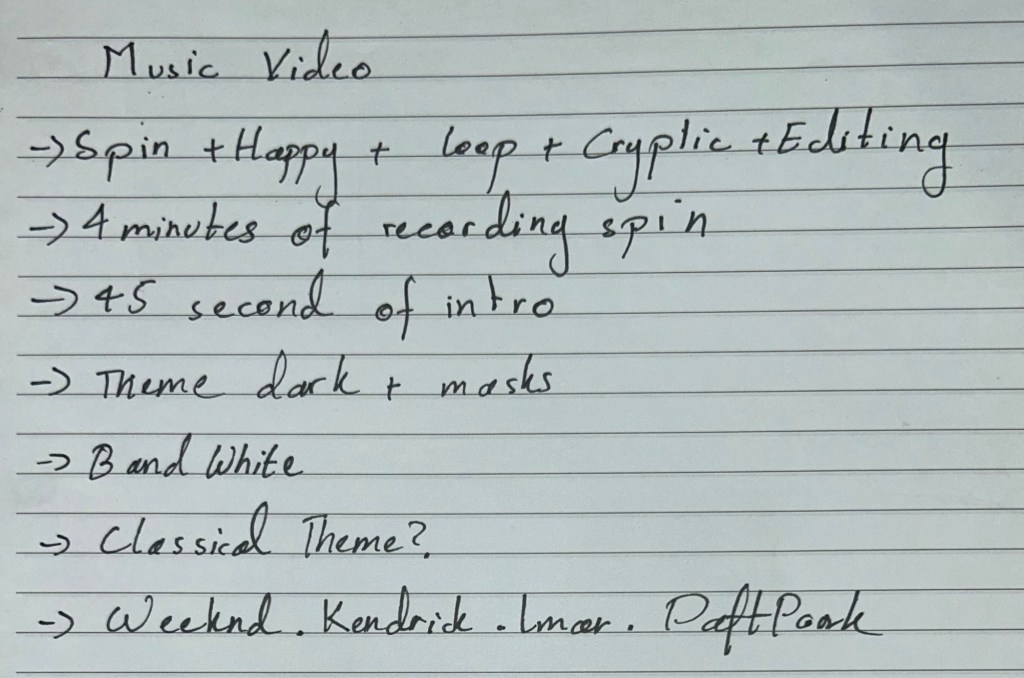 Music Video
→ Spin + Happy + loop + Cryptic + Editing
→ 4 minutes of recording spin
→ 45 second of intro
→ Theme dark + masks
→ B and White
→ Classical Theme?
→ Weeknd . Kendrick . lmar . Daft Pank